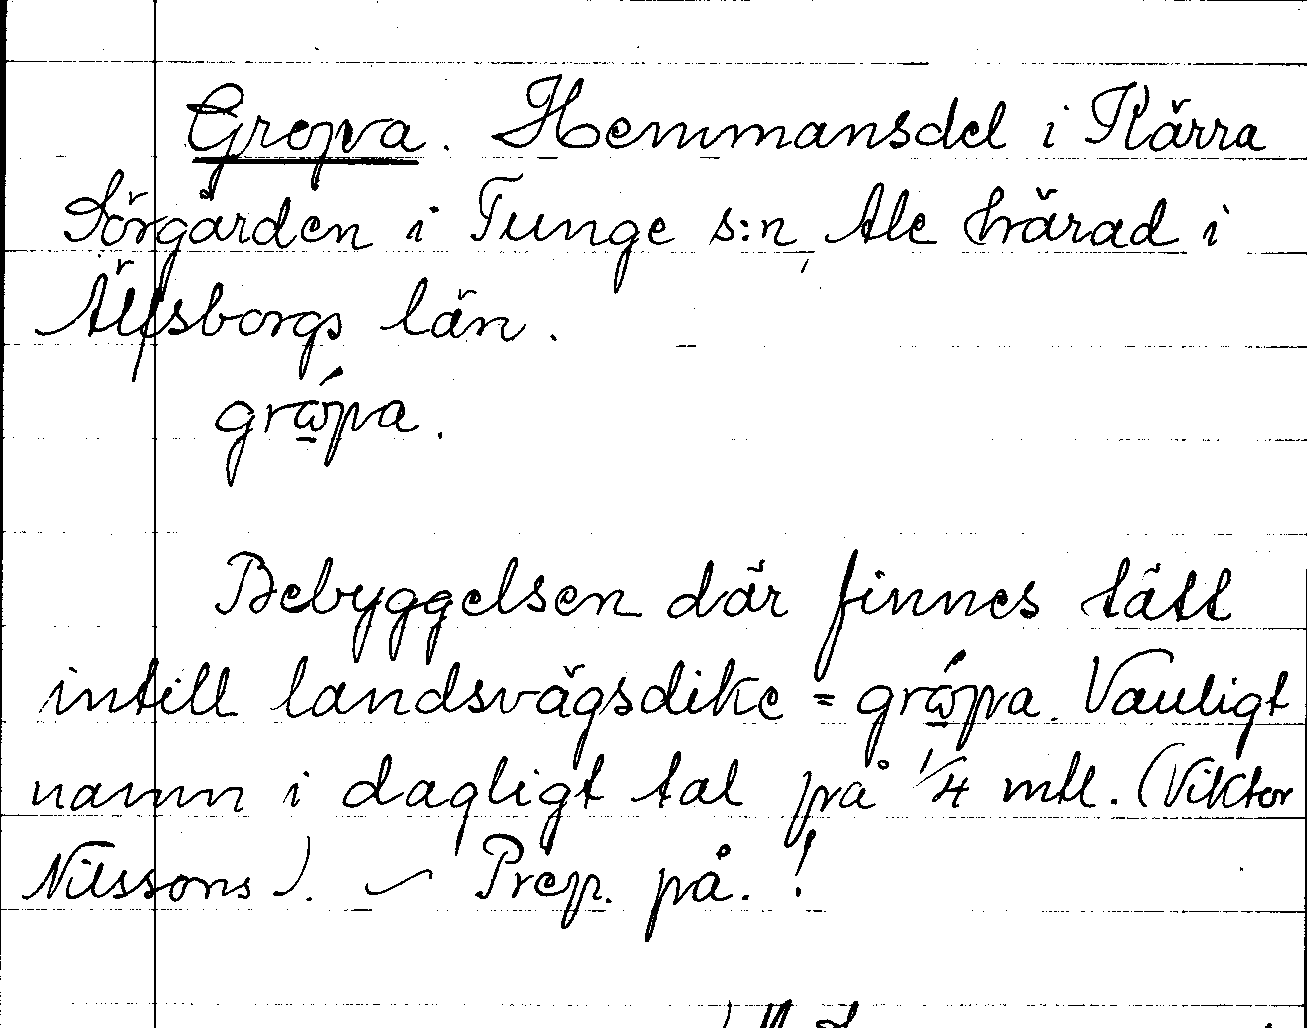 Gropa. Hemmansdel i Kärra
Sörgården i Tunge s:n, Ale härad i
Älfsborgs län.
grώ̲pa.
Bebyggelsen där finnes tätt
intill landsvägsdike = grώ̲pa. Vanligt
namn i dagligt tal på 1/4 mtl. (Viktor
Nilssons). ~ Prep. på. !